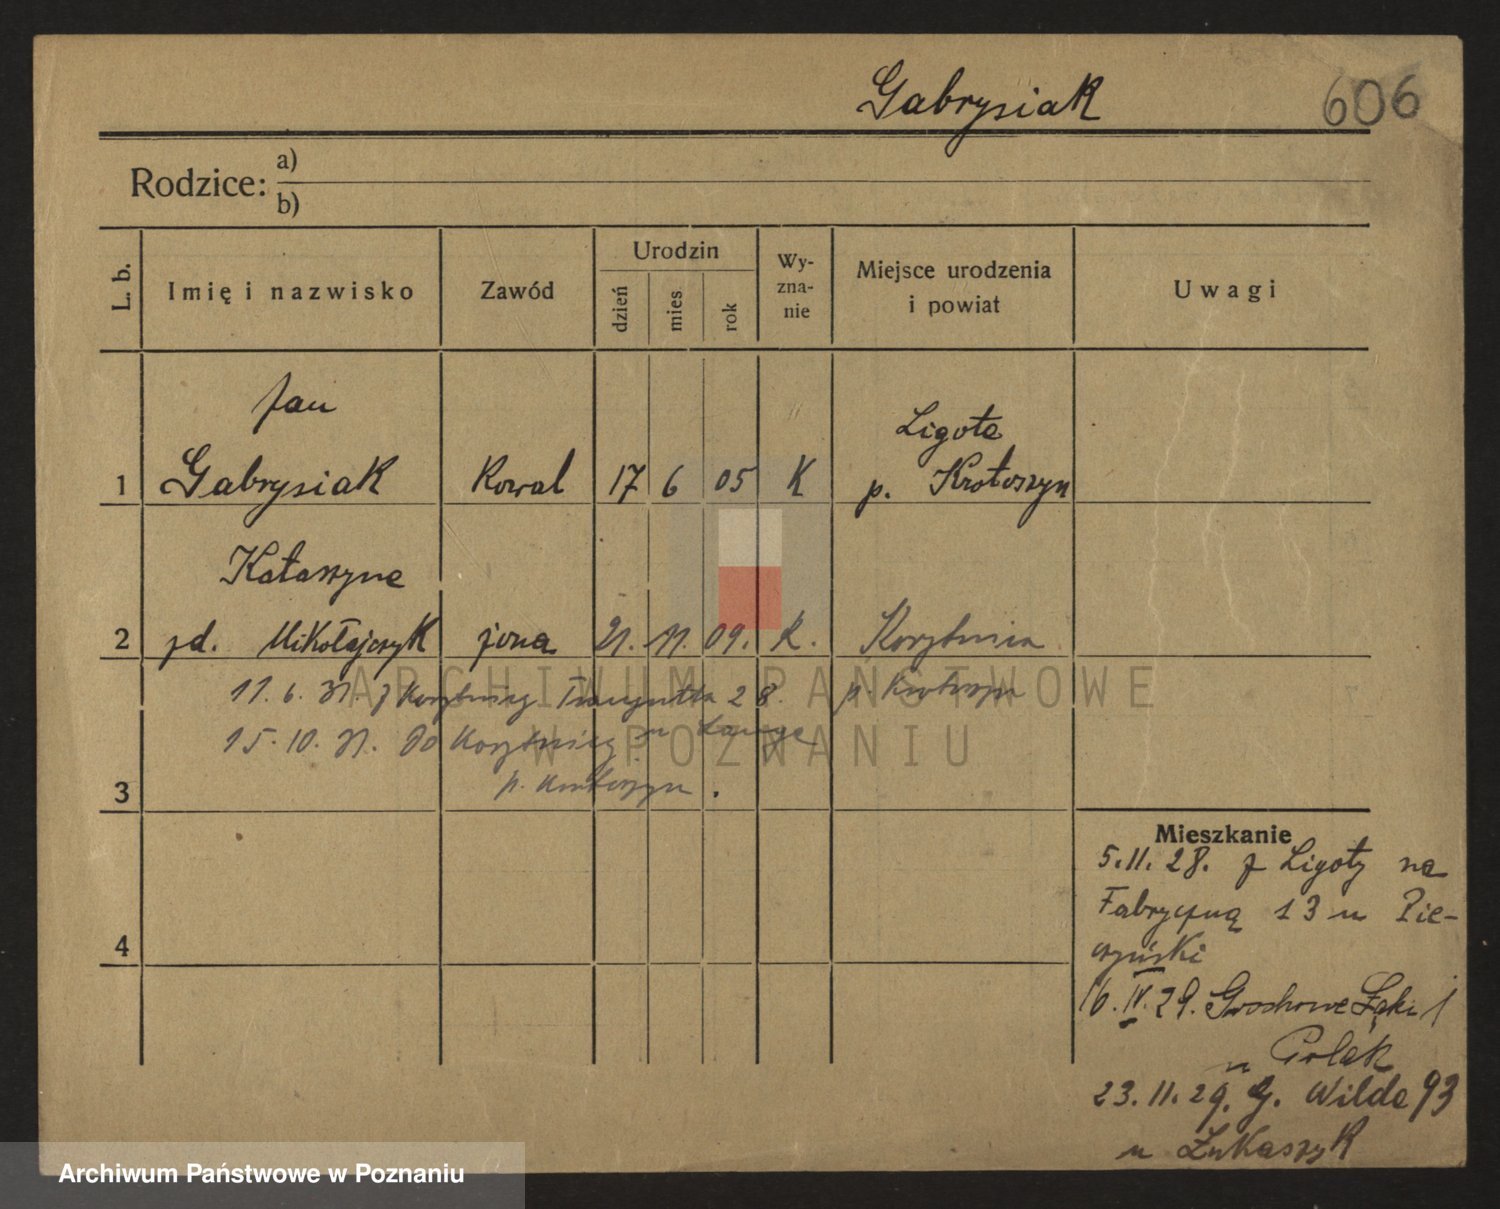 Gabrysiak 606
Rodzice: a)
b)
L. b.
Imię i nazwisko
Zawód
Urodzin
dzień
mies
rok
Wy-
zna-
nie
Miejsce urodzenia
i powiat
Uwagi
Jan
Ligota
1 Gabrysiak Kowal 17 6 05 K p. Krotoszyn
Katarzyna
2 zd. Mikołajczyk żona 21. 11. 09. K. Korytnica
11. 6. 31 z Korytnicy Traugutta 28. p. Krotoszyn
15. 10. 31. do Korytnicy u
p. Krotoszyn.
3
Mieszkanie
5.11.28. z Ligoty na
Fabryczną 13 u Pie-
czyński
4
16.IV.29. Grochowe Łąki 1
u Polak
23.11.29. G. Wilda 93
u Łukaszyk
ARCHIWUM PAŃSTWOWE
W POZNANIU
Archiwum Państwowe w Poznaniu